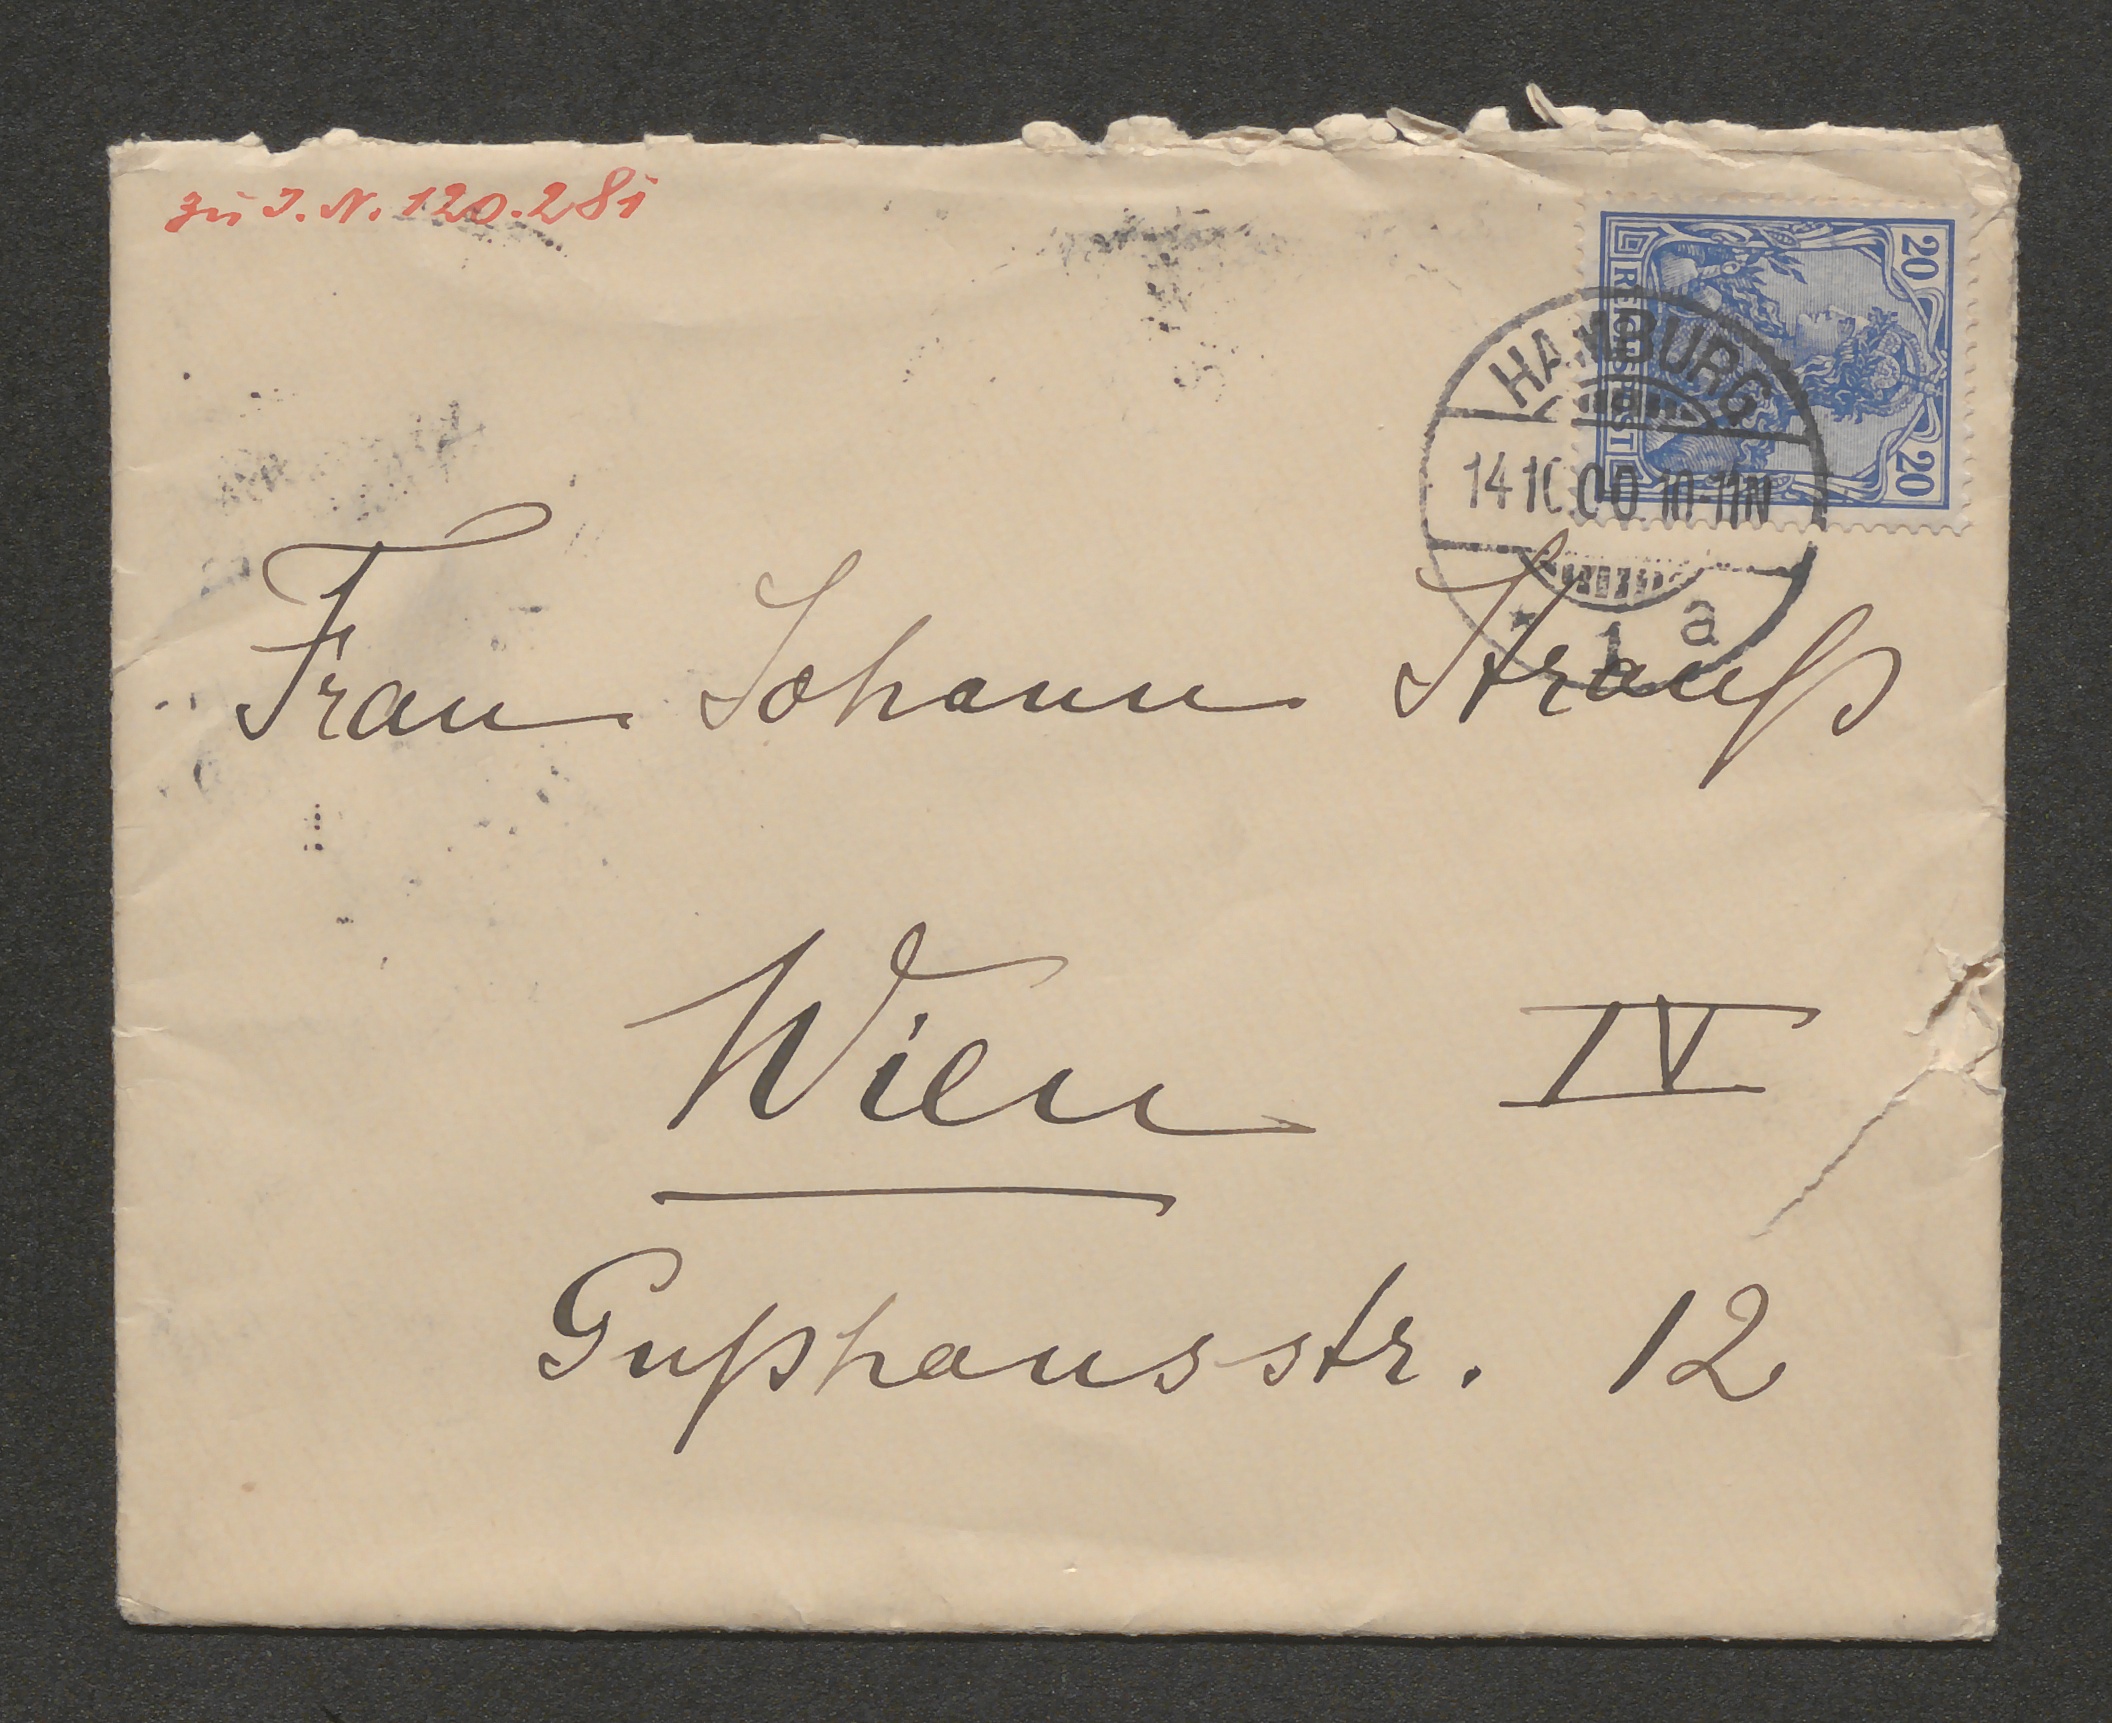 zu I.N. 120.281
20 REICHSPOST 20
HAMBURG
10-11N
* 1 a
Frau Johann Strauß
Wien IV
Gußhausstr. 12